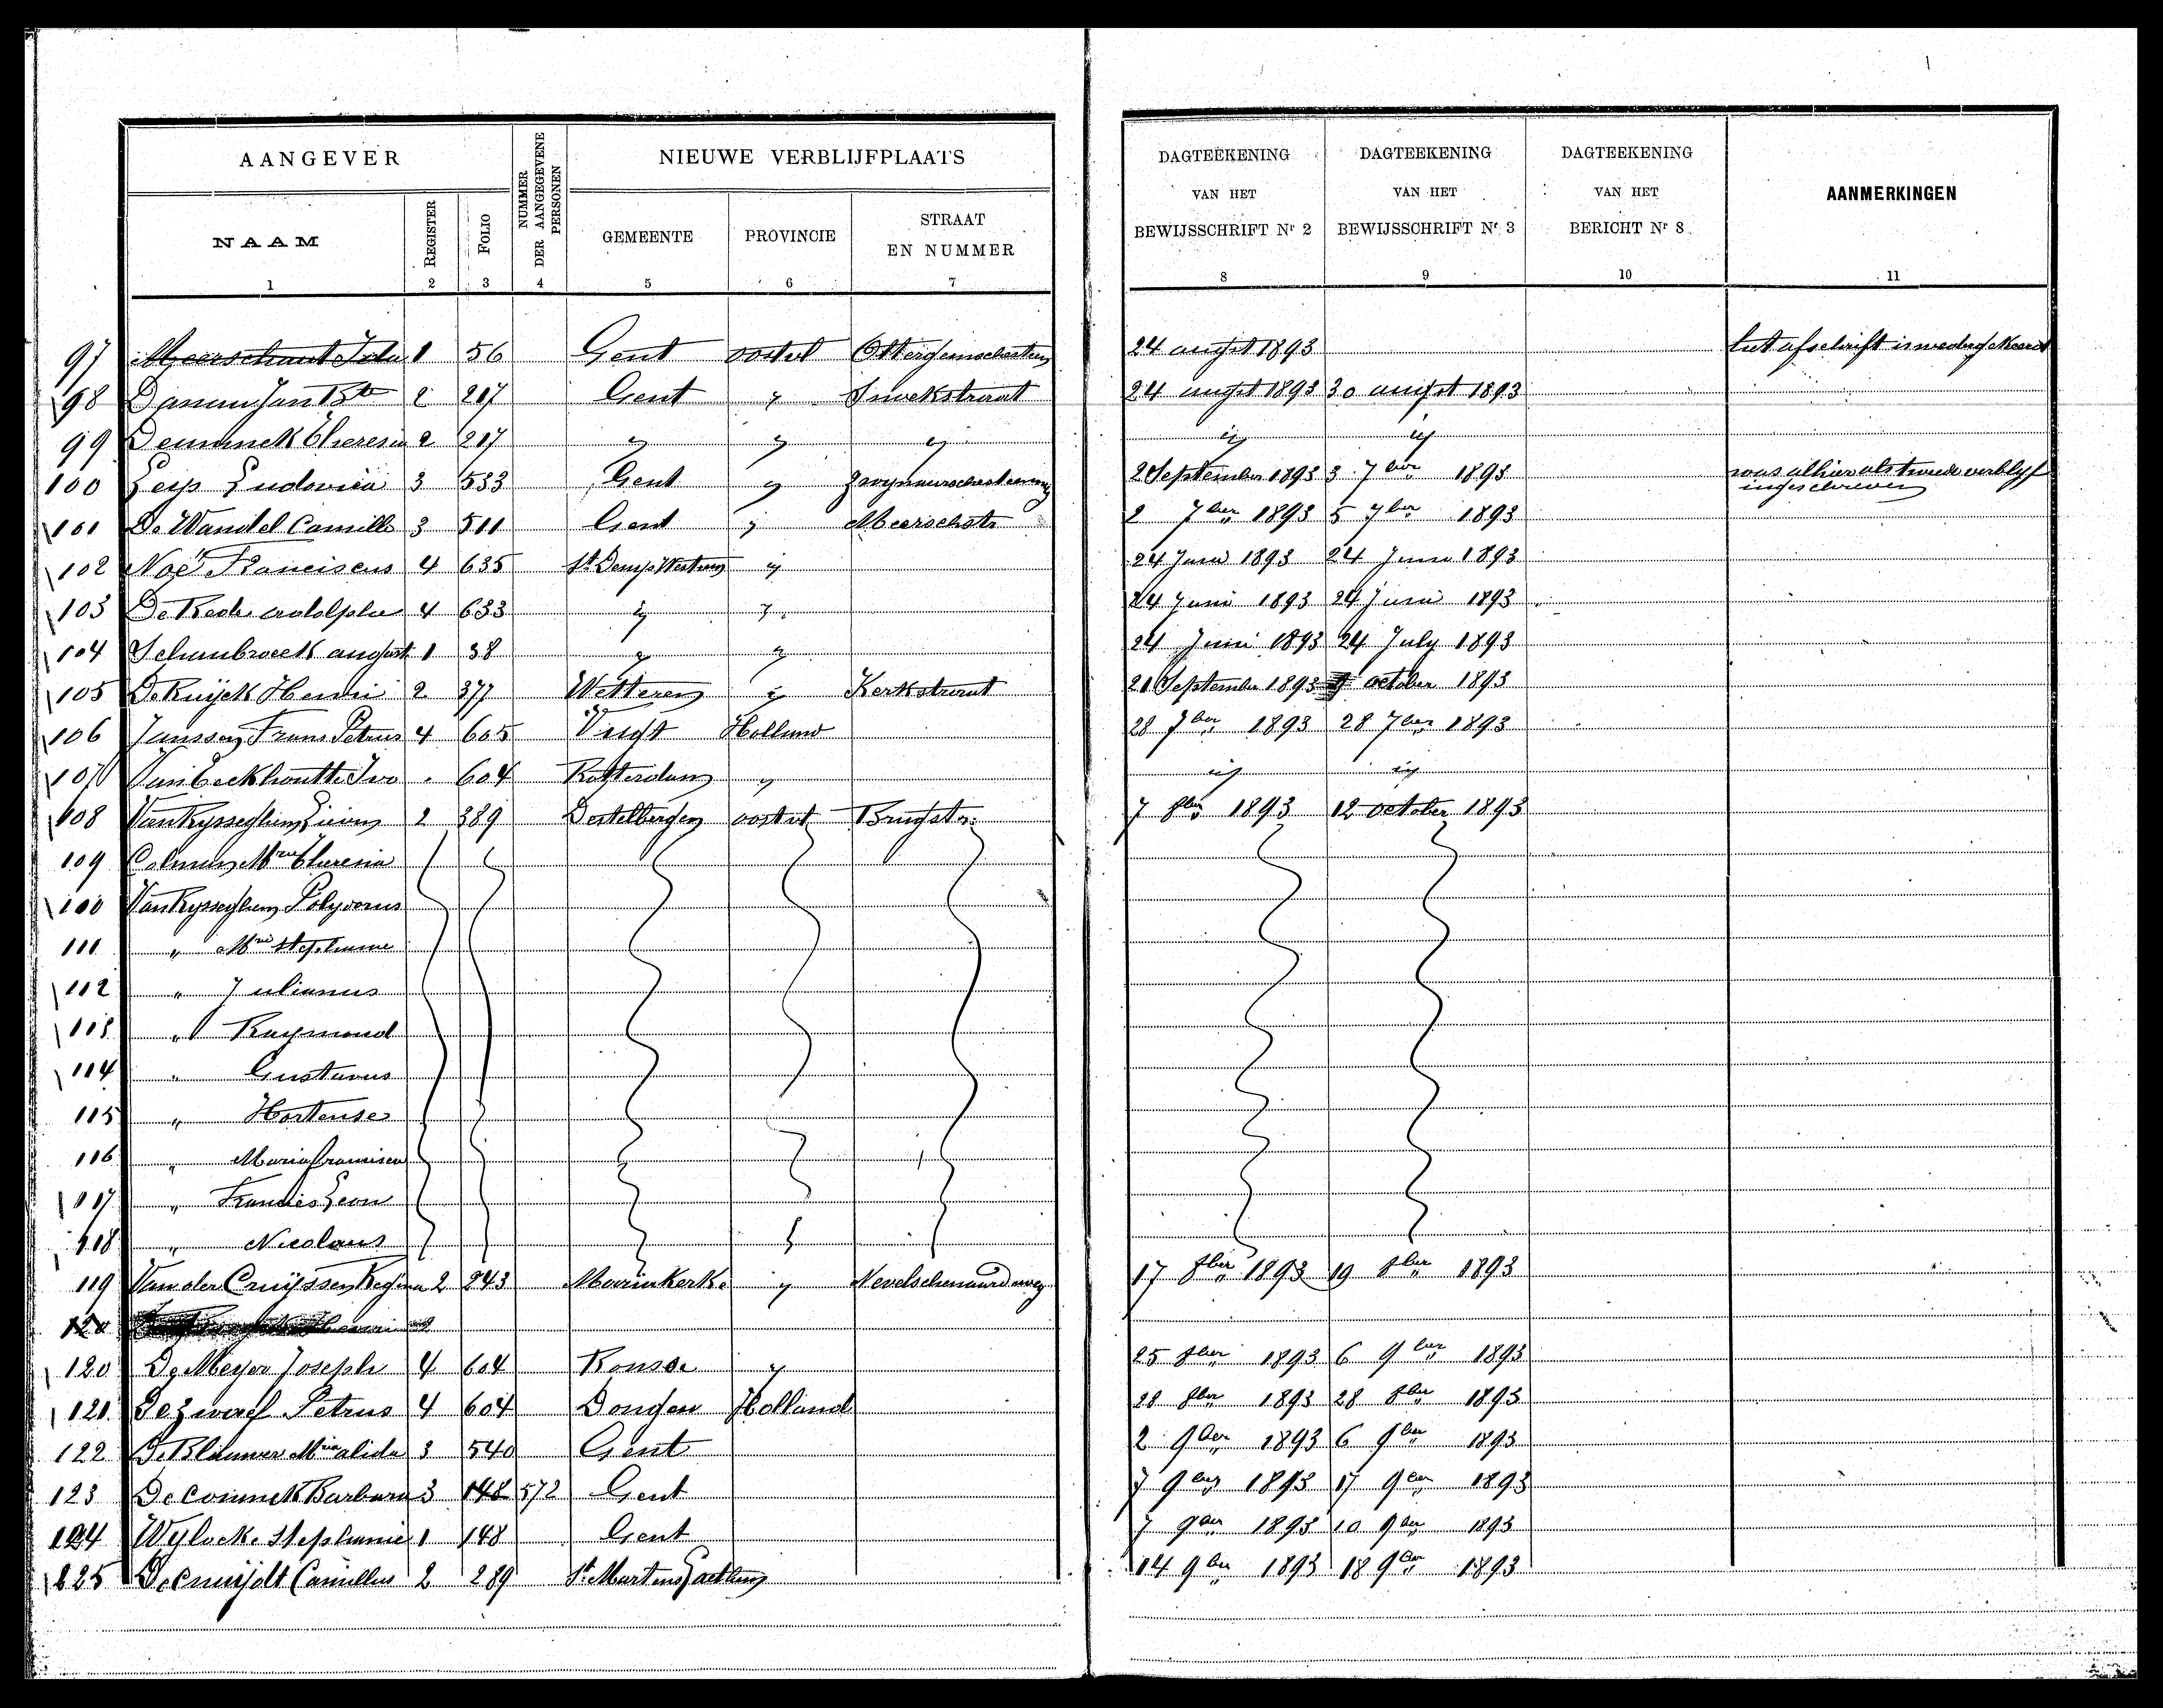 AANGEVER
NUMMER DER AANGEGEVENE PERSONEN
NIEUWE VERBLIJFPLAATS
DAGTEEKENING VAN HET BEWIJSSCHRIFT Nr 2
DAGTEEKENING VAN HET BEWIJSSCHRIFT Nr 3
DAGTEEKENING VAN HET BERICHT Nr 8
AANMERKINGEN
NAAM REGISTER FOLIO GEMEENTE PROVINCIE STRAAT EN NUMMER
1 2 3 4 5 6 7 8 9 10 11
97 Meerschaut Ida 1 56 Gent oostvl 24 augst 1893 het afschrift is
98 Jan Bte 2 217 Gent " 24 augst 1893 30 augst 1893
99 Theresia 2 217 " " " " "
100 Leys Ludovica 3 533 Gent " 2 September 1893 3 7ber 1893 was alhier als tweede verblyf
ingeschreven
101 De Wandel Camille 3 511 Gent " Meerschstr 2 7ber 1893 5 7ber 1893
102 Noë Franciscus 4 635 St Denys Westrem " 24 Juni 1893 24 Juni 1893
103 De adolphe 4 633 " " 24 Juni 1893 24 Juni 1893
104 Schaubroeck august 1 38 " " 24 Juni 1893 24 July 1893
105 De Ruijck Henri 2 377 Wetteren " Kerkstraat 21 September 1893 october 1893
106 Janssen Frans Petrus 4 605 Vught Holland 28 7ber 1893 28 7ber 1893
107 Van Eeckhoutte Ivo " 604 Rotterdam " " "
108 Van Rysseghem Lieven 2 389 Destelbergen oostvl Brugstr: 7 8ber 1893 12 october 1893
109 Colman Mria Theresia
100 Van Rysseghem Polydorus
111 " Mria Stephanie
112 " Julianus
113 " Raymond
114 " Gustavus
115 " Hortense
116 " Maria Francisca
117 " Francies Leon
118 " Nicolaus
119 Van der Cruijssen Regina 2 243 Mariakerke " 17 8ber 1893 19 8ber 1893
120 Henri
120 De Meyer Joseph 4 604 Ronse " 25 8ber 1893 6 9ber 1893
121 Petrus 4 604 Dongen Holland 28 8ber 1893 28 8ber 1893
122 De Blauwer Mria alida 3 540 Gent 2 9ber 1893 6 9ber 1893
123 De Coninck Barbara 3 148 572 Gent 7 9ber 1893 17 9ber 1893
124 Wylock Stephanie 1 148 Gent 7 9ber 1893 10 9ber 1893
125 Camillus 2 289 St Martens Laethem 14 9ber 1893 18 9ber 1893